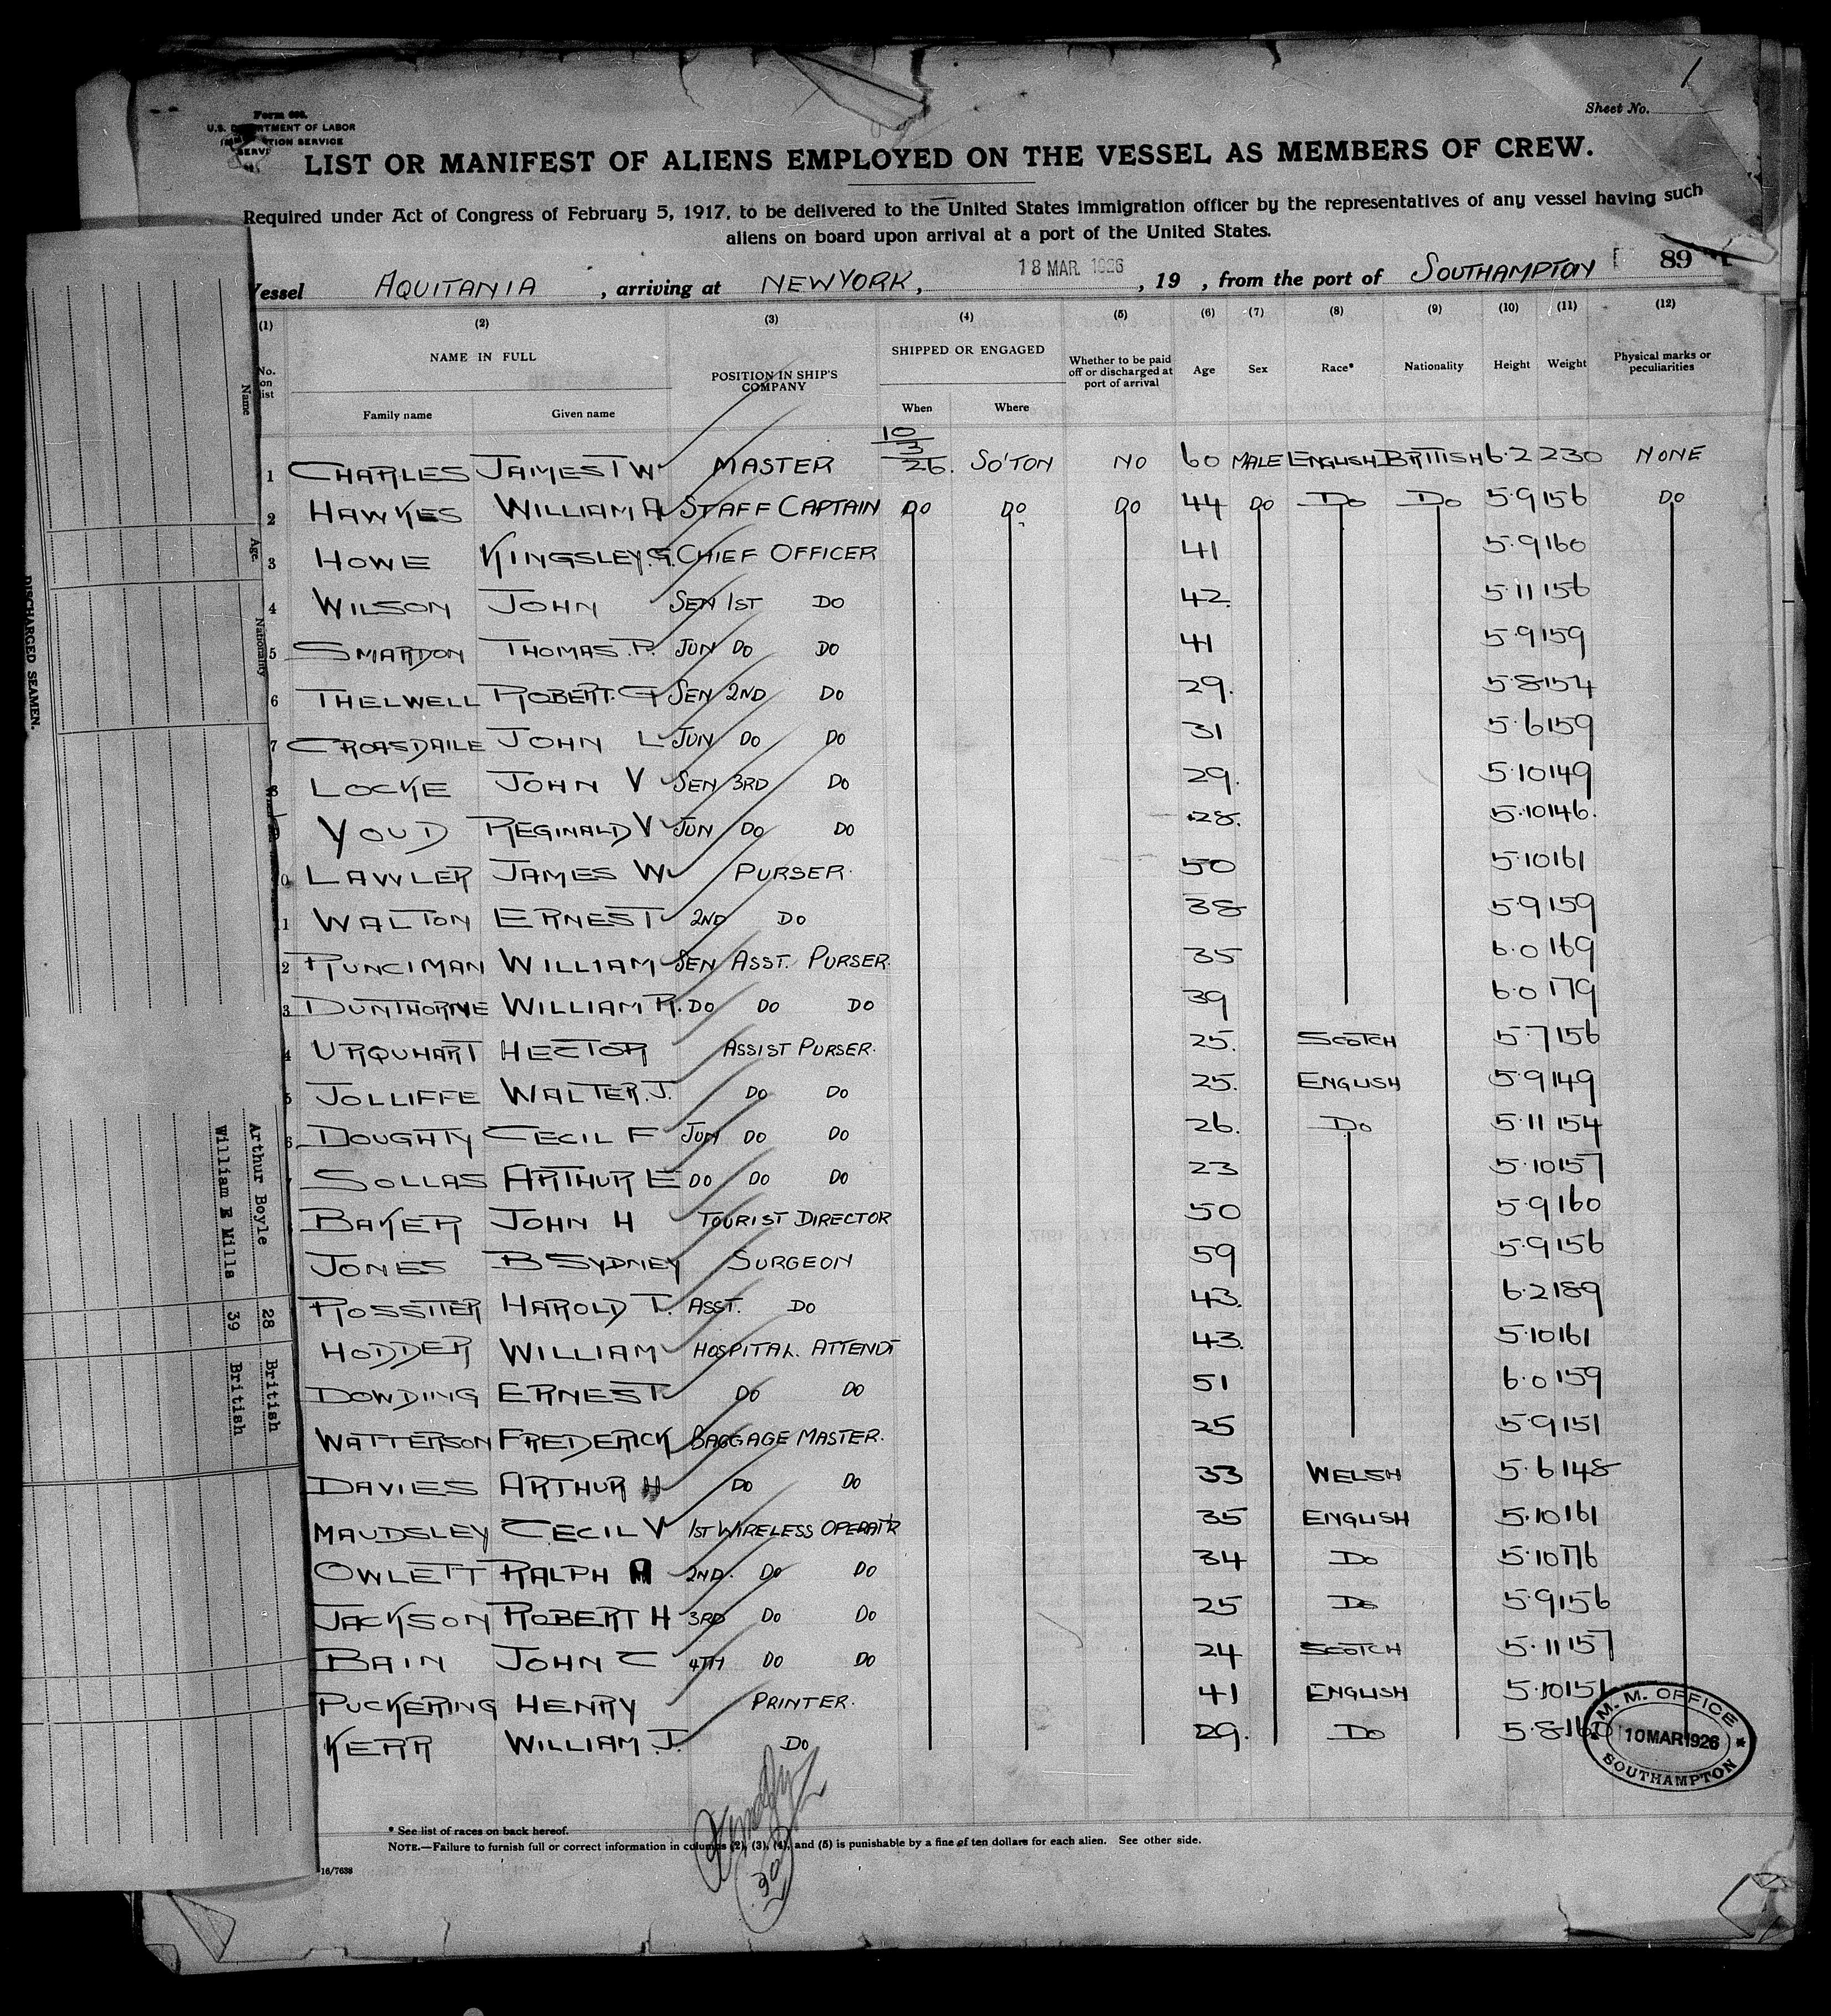 1
Sheet No.
Form 689.
U.S. DEPARTMENT OF LABOR
IMMIGRATION SERVICE
LIST OR MANIFEST OF ALIENS EMPLOYED ON THE VESSEL AS MEMBERS OF CREW.
Required under Act of Congress of February 5, 1917, to be delivered to the United States immigration officer by the representatives of any vessel having such
aliens on board upon arrival at a port of the United States.
Vessel AQUITANIA, arriving at NEW YORK, 18 MAR. 1926, 19 , from the port of SOUTHAMPTON 89
(1) (2) (3) (4) (5) (6) (7) (8) (9) (10) (11) (12)
No. on list NAME IN FULL POSITION IN SHIP'S COMPANY SHIPPED OR ENGAGED Whether to be paid off or discharged at port of arrival Age Sex Race* Nationality Height Weight Physical marks or peculiarities
Family name Given name When Where
1 CHARLES JAMES T W MASTER 10/3/26. SO'TON NO 60 MALE ENGLISH BRITISH 6.2 230 NONE
2 HAWKES WILLIAM A STAFF CAPTAIN DO DO DO 44 DO DO DO 5.9 156 DO
3 HOWE KINGSLEY.G. CHIEF OFFICER 41 5.9 160
4 WILSON JOHN SEN 1ST DO 42. 5.11 156
5 SMARDON THOMAS.P. JUN DO DO 41 5.9 159
6 THELWELL ROBERT.G SEN 2ND DO 29. 5.8 154
7 CROASDAILE JOHN L JUN DO DO 31 5.6 159
8 LOCKE JOHN V SEN 3RD DO 29. 5.10 149
YOUD REGINALD V JUN DO DO 28. 5.10 146.
0 LAWLER JAMES W PURSER. 50 5.10 161
1 WALTON ERNEST 2ND DO 38 5.9 159
2 RUNCIMAN WILLIAM SEN ASST. PURSER. 35 6.0 169
3 DUNTHORNE WILLIAM R. DO DO DO 39 6.0 179
4 URQUHART HECTOR ASSIST PURSER. 25. SCOTCH 5.7 156
5 JOLLIFFE WALTER.J. DO DO 25. ENGLISH 5.9 149
6 DOUGHTY CECIL F JUN DO DO 26. DO 5.11 154
SOLLAS ARTHUR E DO DO DO 23 5.10 157
BAKER JOHN H TOURIST DIRECTOR 50 5.9 160
JONES B SYDNEY SURGEON 59 5.9 156
ROSSITER HAROLD T. ASST. DO 43. 6.2 189
HODDER WILLIAM HOSPITAL ATTENDT 43. 5.10 161
DOWDING ERNEST DO DO 51 6.0 159
WATTERSON FREDERICK BAGGAGE MASTER. 25 5.9 151
DAVIES ARTHUR H DO DO 33 WELSH 5.6 148
MAUDSLEY CECIL V 1ST WIRELESS OPERAT'R 35 ENGLISH 5.10 161
OWLETT RALPH A 2ND. DO DO 34 DO 5.10 176
JACKSON ROBERT H 3RD DO DO 25 DO 5.9 156
BAIN JOHN C 4TH DO DO 24 SCOTCH 5.11 157
PUCKERING HENRY PRINTER. 41 ENGLISH 5.10 151
KERR WILLIAM.J. DO 29. DO 5.8 160
M. M. OFFICE
10 MAR 1926
SOUTHAMPTON
30
* See list of races on back hereof.
NOTE.—Failure to furnish full or correct information in columns (2), (3), (4), and (5) is punishable by a fine of ten dollars for each alien. See other side.
16/7638
DISCHARGED SEAMEN.
Name
Age
Nationality
Arthur Boyle 28 British
William E Mills 39 British